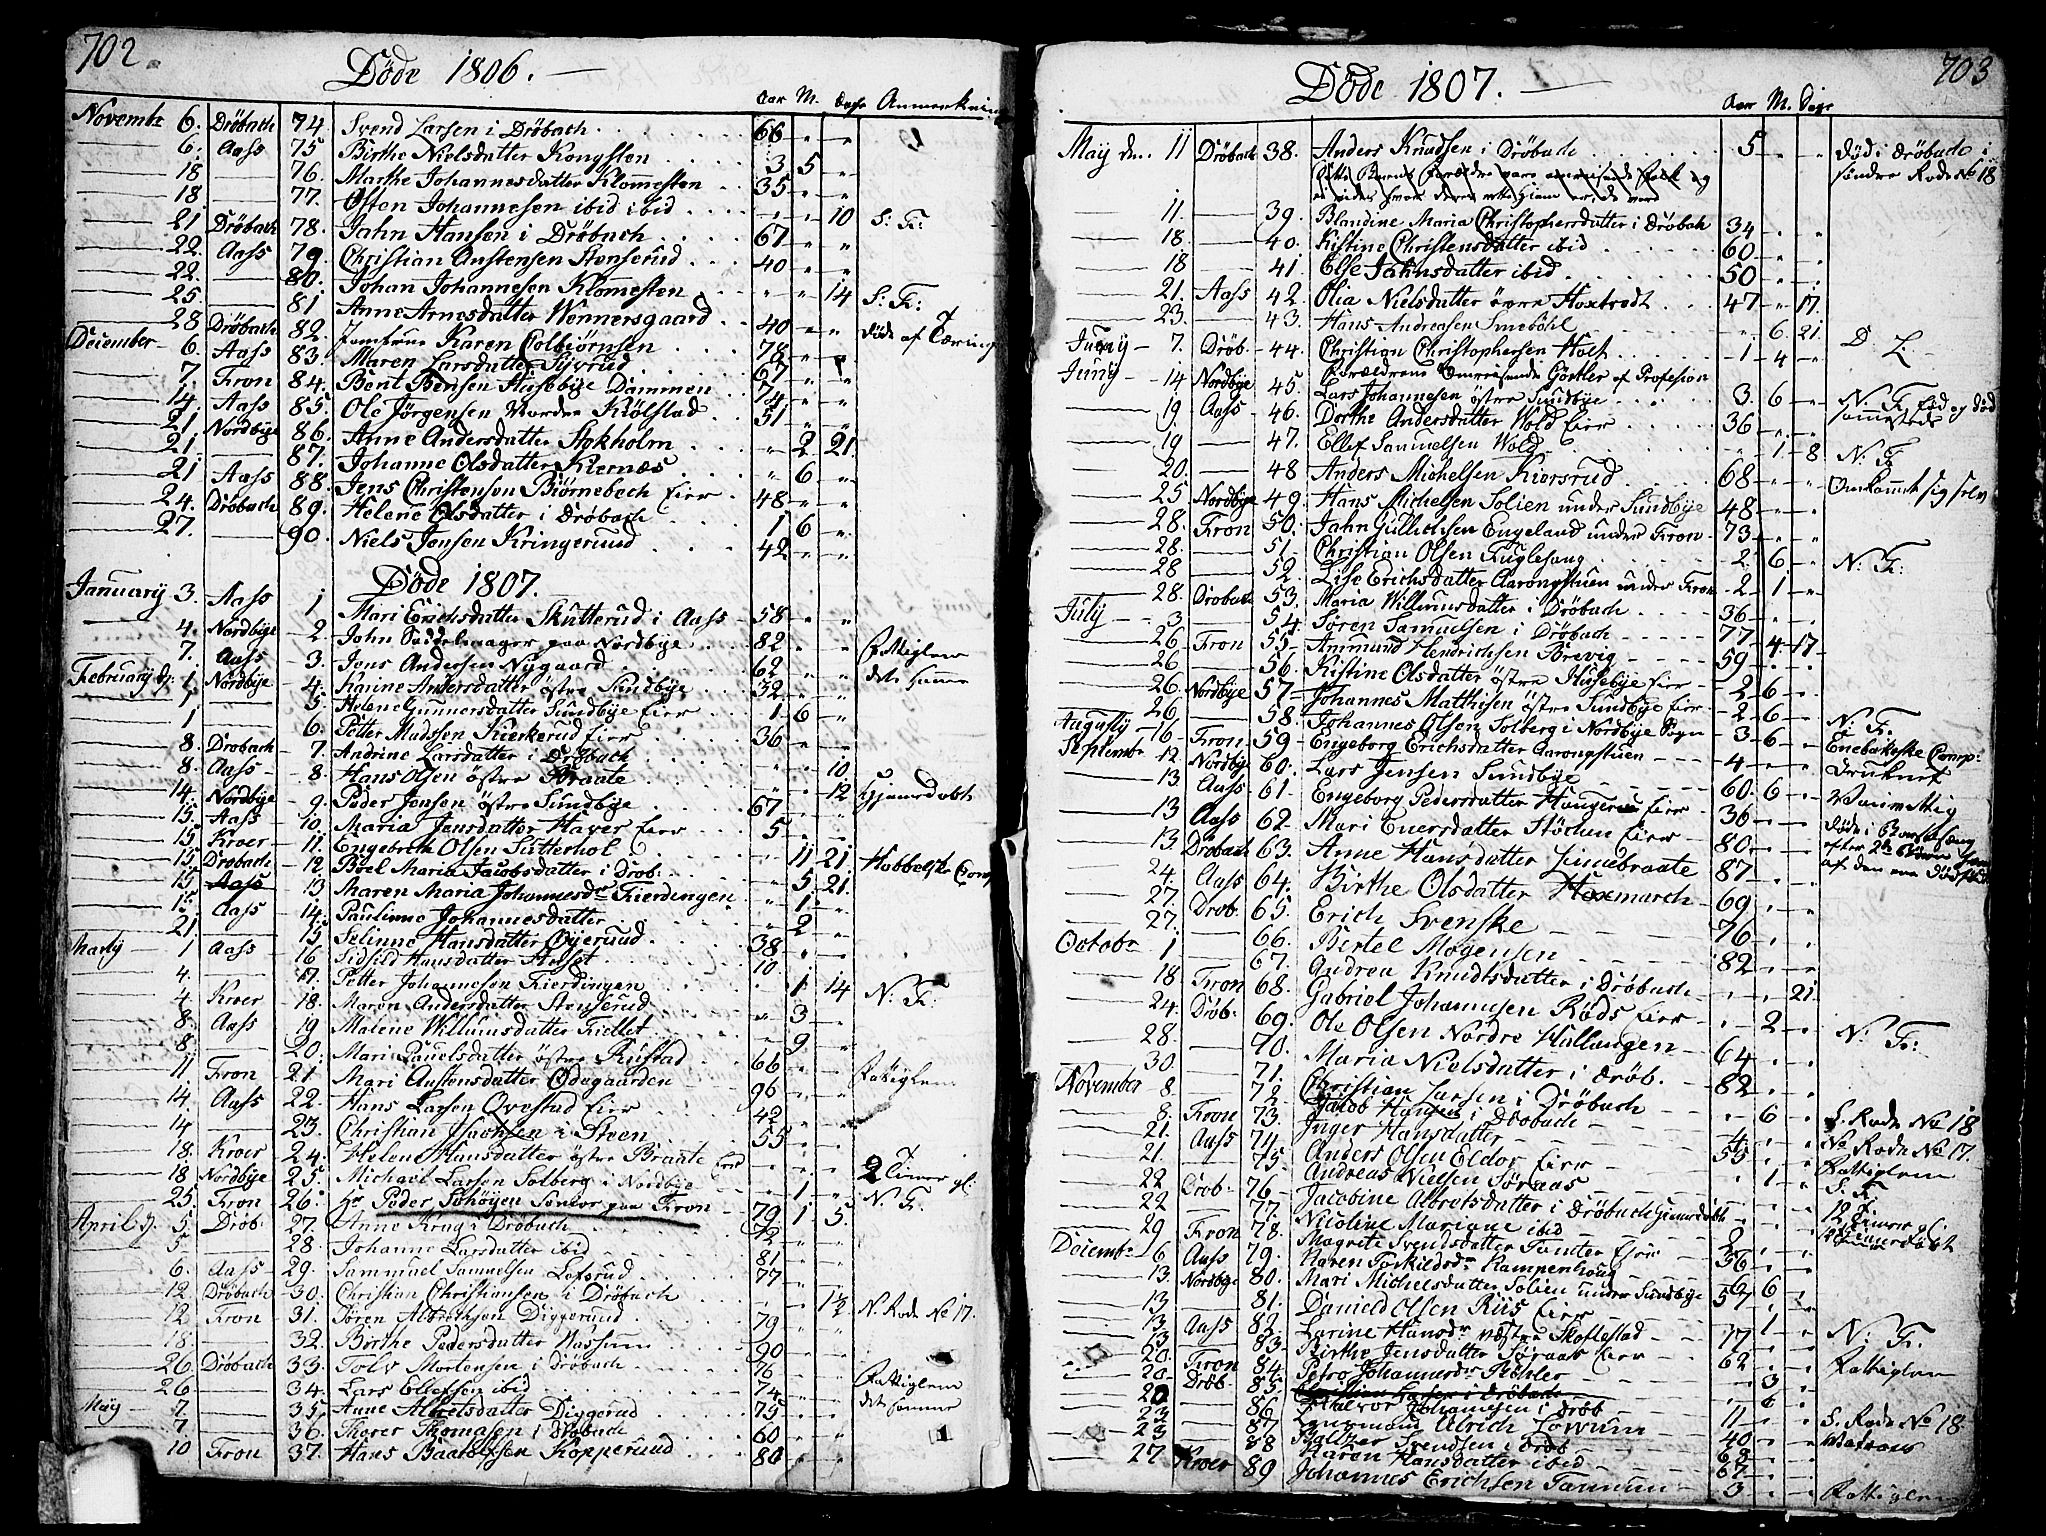 702.
Døde 1806.
Aar M. Dage Anmerkning
Novembr 6. Drøbach 74 Svend Larsen i Drøbach 66 " "
6. Aass 75 Birthe Nielsdatter Kongsten 3 5 "
18 76. Marthe Johannesdatter Klomesten 35 " "
18 77. Osten Johannesen ibid ibid " " 10 S: Fr:
21 Drøbach 78. Jahn Hansen i Drøbach 67 " "
22. Aass 79 Christian Anstensen Stenserud 40 " "
22. 80. Johan Johannesen Klomesten " " 14 S: Fr:
25. 81 Anne Arnesdatter Wennersgaard 40 " "
28 Drøbach 82. Jomfrue Karen Colbjørnsen 78 døde af Tæring
December 6. Aass 83. Maren Larsdatter Sigsrud 67 " "
7. Fron 84. Bent Bensen Husebye Dammen 74 " "
14. Aass 85. Ole Jørgensen Nordre Kiølstad 51 " "
21 Nordbye 86. Anne Andersdatter Stokholm " 2 21
21. 87. Johanne Olsdatter Kiernæs " 6 "
21 Aass 88. Jens Christensen Biørnebech Eier 48 " "
24. Drøbach 89. Helene Olsdatter i Drøbach 1 6 "
27. 90. Niels Jensen Kringerund 42 " "
Døde 1807.
January 3. Aass 1 Mari Erichsdatter Skutterud i Aass 58 " "
4. Nordbye 2. John Saddelmager paa Nordbye 82 " " Fattiglem
7. Aass 3. Jens Andersen Nygaard 62 " "
February 1 Nordbye 4. Karine Andersdatter østre Sundbye 32 " "
1 5. Helene Gunnersdatter Sundbye Eier 1 6 "
1 6. Petter Madssen Kierkerud Eier 36 " "
8. Drobach 7. Andrine Larsdatter i Drøbach " " 10.
8. Aass 8. Hans Olsen østre Braate " " 12 Hjemdøbt
14. Nordbye 9. Peder Jensen østre Sundbye 67 " "
15. Aass 10. Maria Jensdatter Haver Eier 5 " "
15 Kroer 11. Engebreth Olsen Sitterhol " 11 21.
15 Drobach 12. Boel Maria Jacobsdatter i Drøb. " 5 21.
15 13 Maren Maria Johannesdr Fierdingen " 1 "
15 Aass 14. Paulinne Johannesdatter " 2 "
21. 15. Selinne Hansdatter Øyerud 38 " "
Marty 1 Aass 16. Sidsild Hansdatter Holset 10 " "
4. 17. Petter Johannesen Fierdingen " 1 14 N: Fr:
4. Kroer 18. Maren Andersdatter Stenserud " 3 "
8. Aass 19 Malene Willumsdatter Kiellet " 9 "
8 20. Mari Pauelsdatter østre Rustad 66 " " Fattiglem
11 Fron 21. Mari Austensdatter Odegaarden 96 " "
14. Aass 22. Hans Larsen Qvestad Eier 42 " "
14 23. Christian Isachsen i Steen 55 " "
18. Kroer 24. Helene Hansdatter østre Braate Eier " " " 2 Timer gl:
18 Nordbye 25. Michael Larsen Solberg i Nordbye " 1 " N. Fr.
25 Fron 26. Hr Peder Schøyen Senior paa Fron 79 1 5.
April 5 Drøb. 27. Anne Krog i Drøbach
5 28. Johanne Larsdatter ibid 81 " "
6. Aass 29. Sammuel Samuelsen Lofsrud 77 " "
12 Drøbach 30. Christian Christiansen i Drøbach " 1½ " N. Rode No 17.
12 Fron 31. Søren Albrethsen Diggerud 79 " "
18 32. Birthe Pedersdatter Nassum 90 " "
26 Drøbach 33. Tolv Mortensen i Drøbach 76 " " Fattiglem
26 34. Lars Ellefsen ibid 74 " "
May 7. 35. Anne Albretsdatter Diggerud 75 " "
7. 36. Thorer Thomasen i Drøbach 60 " "
10 Fron 37. Hans Baaldssen Kopperund 80 " "
703
Døde 1807.
Aar M. Dage
May den 11 Drøbach 38. Anders Knudsen i Drøbach 5 " " Død i Drøbach i
søndre Rode No 18
11. 39. Blandine Maria Christophersdatter i Drøbach 34 " "
18. 40. Kistine Christensdatter ibid 60 " "
18 41. Else Jahnsdatter ibid 50 " "
21. Aass 42. Olia Nielsdatter øvre Hoxtvedt 47 " 17.
23. 43. Hans Andreasen Smebøhl " 6 21
Juny 7. Drøb. 44. Christian Christophersen Holt 1 4 "
Forældrene Omreisende Gørtler af Profesion
Juny 14 Nordbye 45. Lars Johannesen østre Sundbye 3. 6 " N. Fr. fød og død
sammesteds
19. Aass 46. Dorthe Andersdatter Wold Eier 36 " "
19 47. Ellef Samuelsen Wold " 1 8 N. Fr
20. 48 Anders Michelsen Kiersrud 68 " " Omkommet sig selv
25 Nordbye 49. Hans Michelsen Solien under Sundbye 48 " "
28. Fron 50. Jahn Gullichsen Engeland under Fron 73 " "
28. 51. Christian Olsen Fuglesang 2 6 " N: Fr:
28 52. Lise Erichsdatter Aarongstuen under Fron 2 1 "
28. Drobach 53. Maria Willumsdatter i Drøbach 36 " "
July 3 54 Søren Samuelsen i Drøbach 77 4 17
26 Fron 55. Ammund Hendrichsen Brevig 59 " "
26 56. Kistine Olsdatter østre Husebye Eier 2 6 "
26. Nordbye 57. Johannes Mathisen østre Sundbye Eier 2 6 "
26 58. Johannes Olsen Solberg i Nordbye Sogn 3 6 " N: Fr.
Augusty 16 Fron 59 Engeborg Erichsdatter Aarongstuen 4 " "
Septembr 12 Nordby 60. Lars Jensen Sundbye 60. 6 " Druknet
13. Aass 61. Engeborg Pedersdatter Haugerud Eier 36 " " Vanvittig
13 Aass 62. Mari Enersdatter Støchen Eier 80 " "
13 Drøbach 63. Anne Hansdatter Linnebraate 87 " "
24. Aass 64. Birthe Olsdatter Hoxmarch 69 " "
27. Drøb. 65. Erich Svenske 76 " "
27. 66. Bertel Mogensen 82 " "
Octobr 1 67. Andrea Knudtsdatter i Drøbach " " 21
18 Fron 68. Gabriel Johannesen Røds Eier " 2 " N: Fr:
24. Drøb. 69. Ole Olsen Nordre Hallangen 64 " "
28. 70. Maria Nielsdatter i Drøb. 82 " "
30. 71. Christian Larsen i Drøbach " 6 " S. Rode No 18
November 8. 72. Jacob Hansen i Drøbach No Rode No 17.
8. Fron 73. Inger Hansdatter 55 Fattiglem
21. Aass 74. Anders Olsen Eldor Eier
21. 75. Andreas Nielsen Søraas
22 Drøb. 76 Jacobine Albretsdatter i Drøbach hjemdøbt
22 77. Nicoline Mariane ibid
29 Fron 78. Magrete Svendsdatter Tomter Eier
Decembr 6 Aass 79. Karen Torkildsdr Kampenhoug 36 " "
13. Nordbye 80. Mari Michelsdatter Solien under Sundbye 57 6 "
13 81. Daniel Olsen Riis Eier " 1 " N: Fr.
13 Aass 82. Larine Hansdr Næstre Skoftestad 77 " "
13 83 Birthe Jensdatter Søraas Eier 62 " " Fattiglem
20. Fron 84. Petro Johannesdr Røhler " 3 "
20. Drøb 85. Christian Larsen i Drøbach " 6 "
20 86 Halvor Johannesen i Drøb 11 " " S. Rode No 18.
23 87 Lansmand Ulrich Lowum 40 " "
23 88 Baltzer Svendsen i Drøb 68 " "
Karen Hansdatter ibid 67 " "
27 Kroer 89 Johannes Erichsen Tannum 3 " " Fattiglem